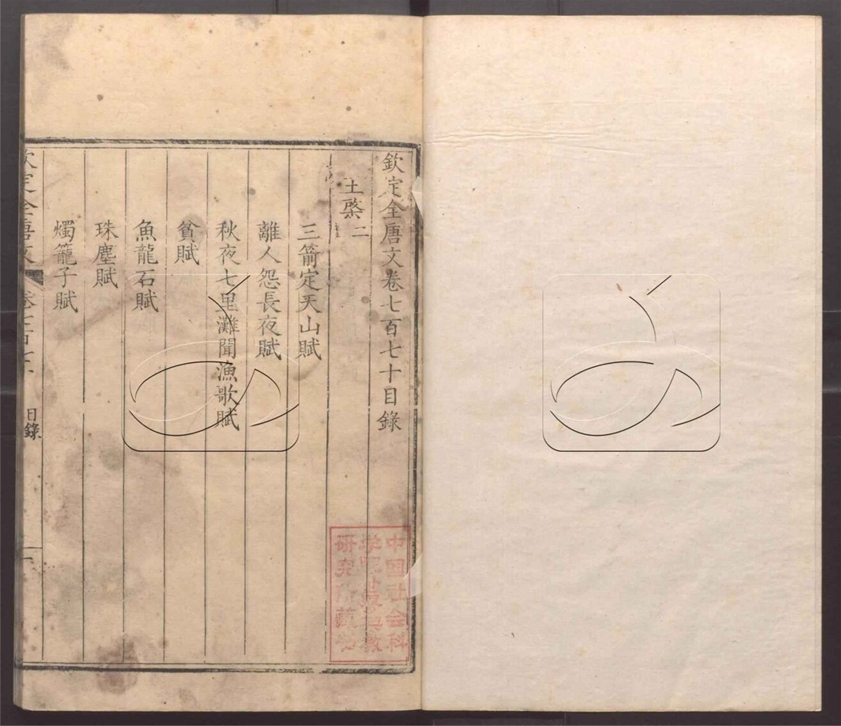 欽定全唐文卷七百七十目錄
王棨二
三箭定天山賦
離人怨長夜賦
秋夜七里灘聞漁歌賦
貧賦
魚龍石賦
珠塵賦
燭籠子賦
欽定全唐文
目錄
中國社会科
学院
研究所藏书